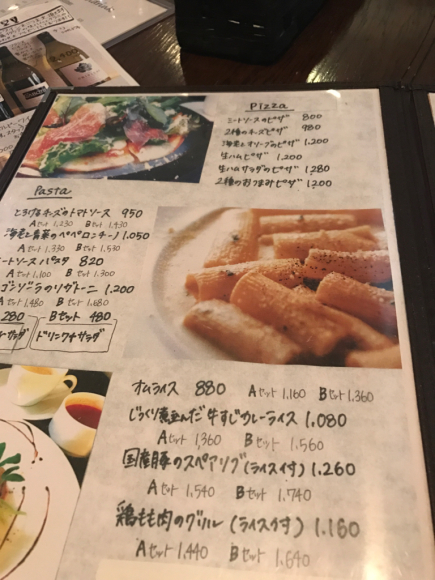 Pizza
ミートソースのピザ 800
2種のチーズピザ 980
海老とオリーブのピザ 1.200
生ハムピザ 1.200
生ハムサラダのピザ 1280
2種のおつまみピザ 1200
Pasta
とろけるチーズのトマトソース 950
Aセット 1.230 Bセット 1.430
海老と青菜のペペロンチーノ 1.050
Aセット 1.330 Bセット 1.530
ートソースパスタ 820
Aセット 1.100 Bセット 1.300
ゴンゾラのリガトーニ 1.200
Aセット 1.480 Bセット 1.680
280 Bセット 480
ーサラダ ドリンク+サラダ
オムライス 880 Aセット 1.160 Bセット 1.360
じっくり煮込んだ牛すじカレーライス 1.080
Aセット 1,360 Bセット 1.560
国産豚のスペアリブ(ライス付) 1.260
Aセット 1,540 Bセット 1.740
鶏もも肉のグリル(ライス付) 1.160
Aセット 1.440 Bセット 1.640